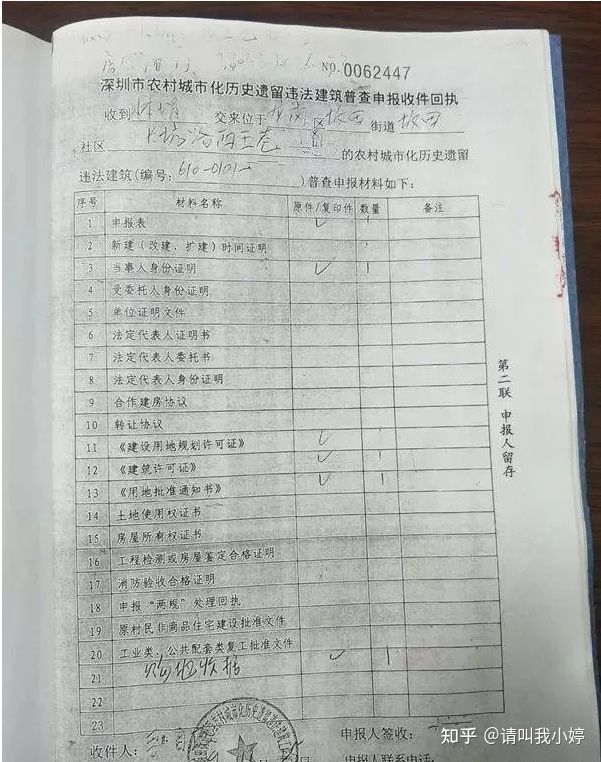 NO.0062447
深圳市农村城市化历史遗留违法建筑普查申报收件回执
收到 交来位于 区 坂田 街道 坂田
社区 的农村城市化历史遗留
违法建筑(编号: )普查申报材料如下:
序号 材料名称 原件/复印件 数量 备注
1 申报表 ✓ 1
2 新建(改建、扩建)时间证明
3 当事人身份证明 ✓ 1
4 受委托人身份证明
5 单位证明文件
6 法定代表人证明书
7 法定代表人委托书
8 法定代表人身份证明
9 合作建房协议
10 转让协议
11 《建设用地规划许可证》 ✓
12 《建筑许可证》 ✓ 1
13 《用地批准通知书》 ✓ 1
14 土地使用权证书
15 房屋所有权证书
16 工程检测或房屋鉴定合格证明
17 消防验收合格证明
18 申报“两规”处理回执
19 原村民非商品住宅建设批准文件
20 工业类、公共配套类复工批准文件
21 收据 ✓ 1
22
23
收件人: 申报人签收:
申报人联系电话:
第二联 申报人留存
知乎 @请叫我小婷